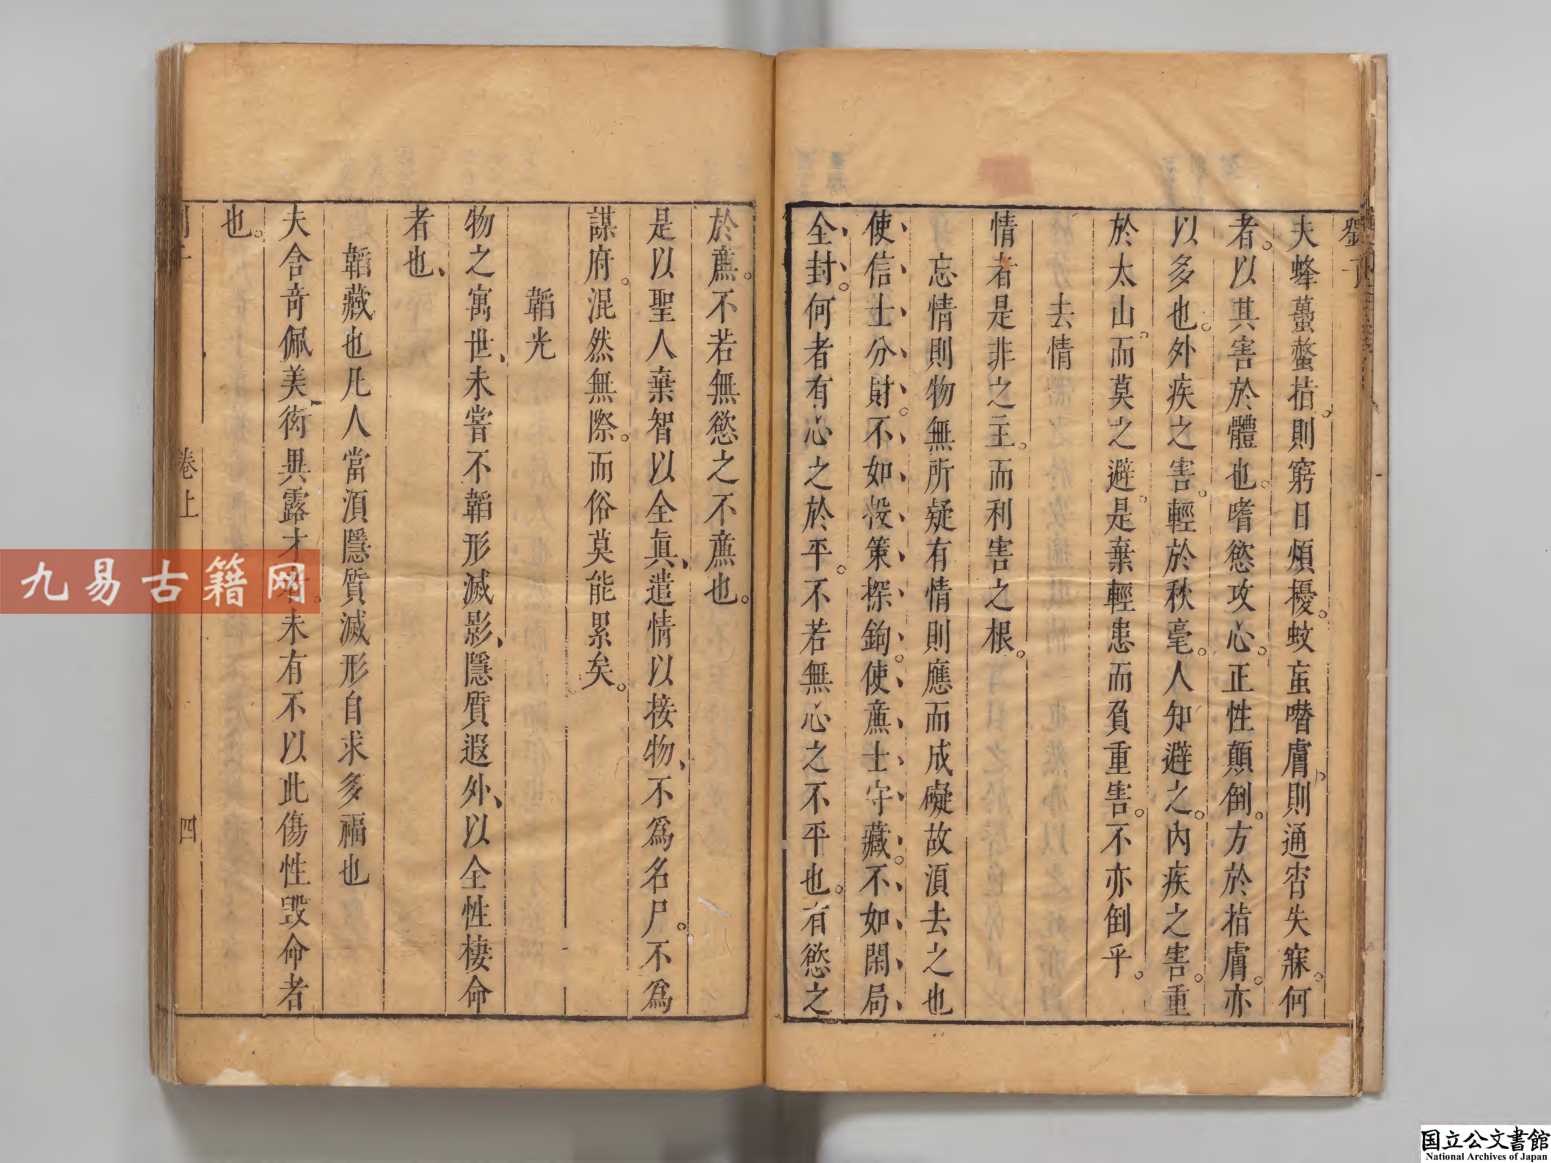 劉子
夫蜂蠆螫指。則窮日煩擾。蚊䖟噆膚、則通宵失寐。何
者。以其害於體也。嗜慾攻心。正性顛倒。方於指膚。亦
以多也。外疾之害。輕於秋毫。人知避之。内疾之害。重
於太山。而莫之避。是棄輕患而負重害。不亦倒乎。
去情
情者是非之主。而利害之根。
忘情則物無所疑有情則應而成礙故湏去之也
使信士分財。不如投策探鉤。使㢘士守藏。不如閑局
全封。何者有心之於平。不若無心之不平也。有慾之
於㢘。不若無慾之不㢘也。
是以聖人棄智以全眞、遣情以接物、不爲名尸。不爲
謀府。混然無際。而俗莫能累矣。
韜光
物之寓世、未甞不韜形滅影、隱質遐外、以全性棲命
者也、
韜藏也凡人當湏隱質滅形自求多福也
夫含奇佩美衒異露才者。未有不以此傷性毀命者
也。
卷上
四
九易古籍网
国立公文書館
National Archives of Japan